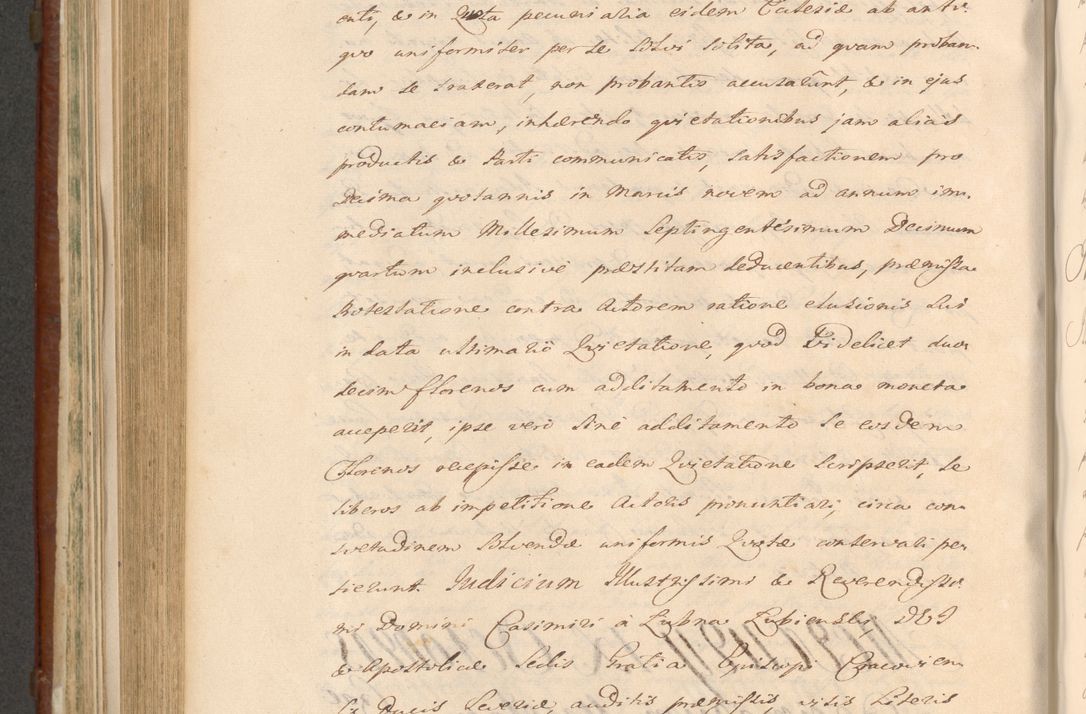 enti, & in Quota pecuniaria eidem Ecclesiæ ab anti-
quo uniformiter per se solvi solita, ad quam proban-
dam se traxerat, non probantis accusarunt, & in ejus
contumaciam, inhærendo quietationibus jam alias
productis & Parti communicatis, satisfactionem pro
Decima quotannis in Marcis novem ad annum im-
mediatum Millesimum Septingentesimum Decimum
quartum inclusive præstitam deducentibus, præmissa
Protestatione contra Actorem ratione elusionis sui
in data ultimario Quietatione, quod Videlicet duo-
decim Florenos cum additamento in bona moneta
acceperit, ipse vero sine additamento se eosdem
Florenos recepisse in eadem Quietatione scripserit, se
liberos ab impetitione Actoris pronuntiari, circa con-
svetudinem solvendæ uniformis Quotæ conservari pe-
tierunt. Judicium Illustrissimi & Reverendissi-
mi Domini Casimiri à Lubna Lubienski, DEI
& Apostolicæ Sedis Gratia Episcopi Cracovien-
sis Ducis Severiæ, auditis præmissis, visis Literis